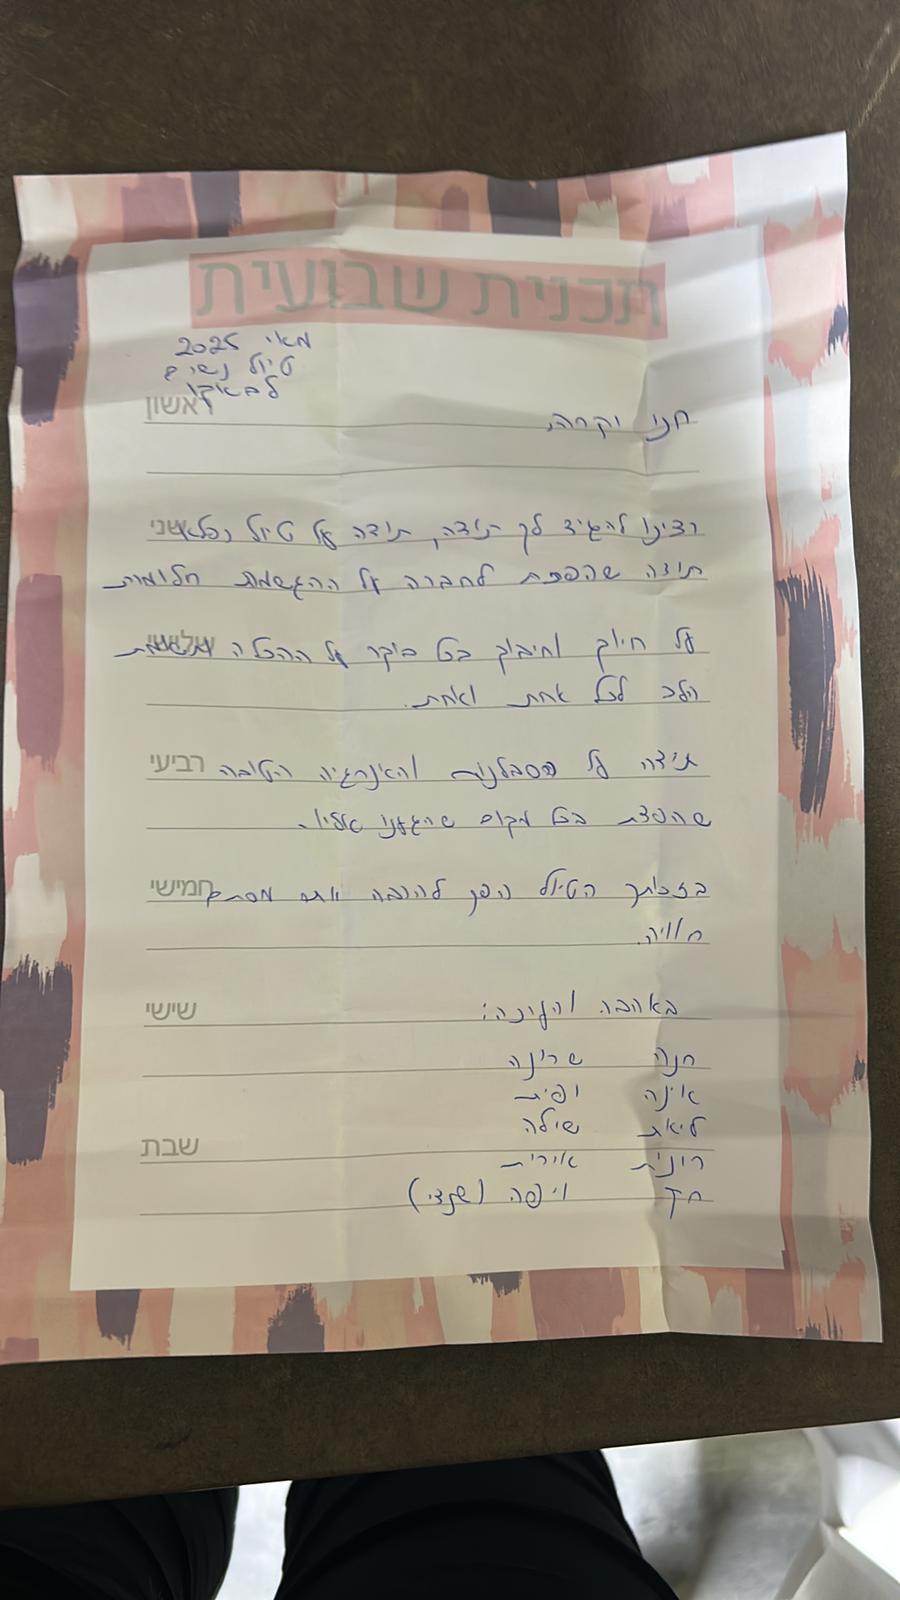 תכנית שבועית
מאי 2025
טיול נשים
לבאקו
ראשון
חני יקרה,
שני
רצינו להגיד לך תודה, תודה על טיול נפלא
תודה שהפכת לחברה על ההגשמת חלומות
שלישי
על חיוך וחיבוק בכל בוקר על ההכלה
הלב לכל אחת ואחת.
רביעי
תודה על הסבלנות והאינרגיה הטובה
שהפצת בכל מקום שהגענו אליו.
חמישי
בזכותך הטיול הפך להרבה יותר מסתם
חוויה.
שישי
באהבה והערכה:
חנה שרינה
אינה
ליאת שילה
שבת
רונית אירית
חן יפה